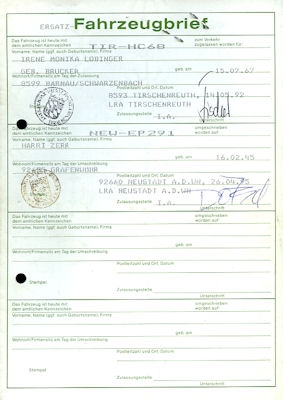 ERSATZ- Fahrzeugbrief
Das Fahrzeug ist heute mit dem amtlichen Kennzeichen TIR-HC68 zum Verkehr zugelassen worden für:
Vorname, Name (ggf. auch Geburtsname), Firma
IRENE MONIKA LODINGER
GEB. BRUCKER geb. am 15.07.67
Wohnort/Firmensitz am Tag der Zulassung Postleitzahl und Ort, Datum
8599 BÄRNAU/SCHWARZENBACH 8593 TIRSCHENREUTH, 14.05.92
LRA TIRSCHENREUTH
Zulassungsstelle I.A.
Unterschrift
Das Fahrzeug ist heute mit dem amtlichen Kennzeichen NEW-EP291 umgeschrieben worden für:
Vorname, Name (ggf. auch Geburtsname), Firma
HARRI ZERR geb. am 16.02.45
Wohnort/Firmensitz am Tag der Umschreibung Postleitzahl und Ort, Datum
GRAFENWÖHR 92660 NEUSTADT A.D.WN, 26.04
LRA NEUSTADT A.D.WN
Zulassungsstelle I.A.
Unterschrift
Das Fahrzeug ist heute mit dem amtlichen Kennzeichen umgeschrieben worden für:
Vorname, Name (ggf. auch Geburtsname), Firma
geb. am
Wohnort/Firmensitz am Tag der Umschreibung
Postleitzahl und Ort, Datum
Stempel Zulassungsstelle
Unterschrift
Das Fahrzeug ist heute mit dem amtlichen Kennzeichen umgeschrieben worden für:
Vorname, Name (ggf. auch Geburtsname), Firma
geb. am
Wohnort/Firmensitz am Tag der Umschreibung
Postleitzahl und Ort, Datum
Stempel Zulassungsstelle
Unterschrift